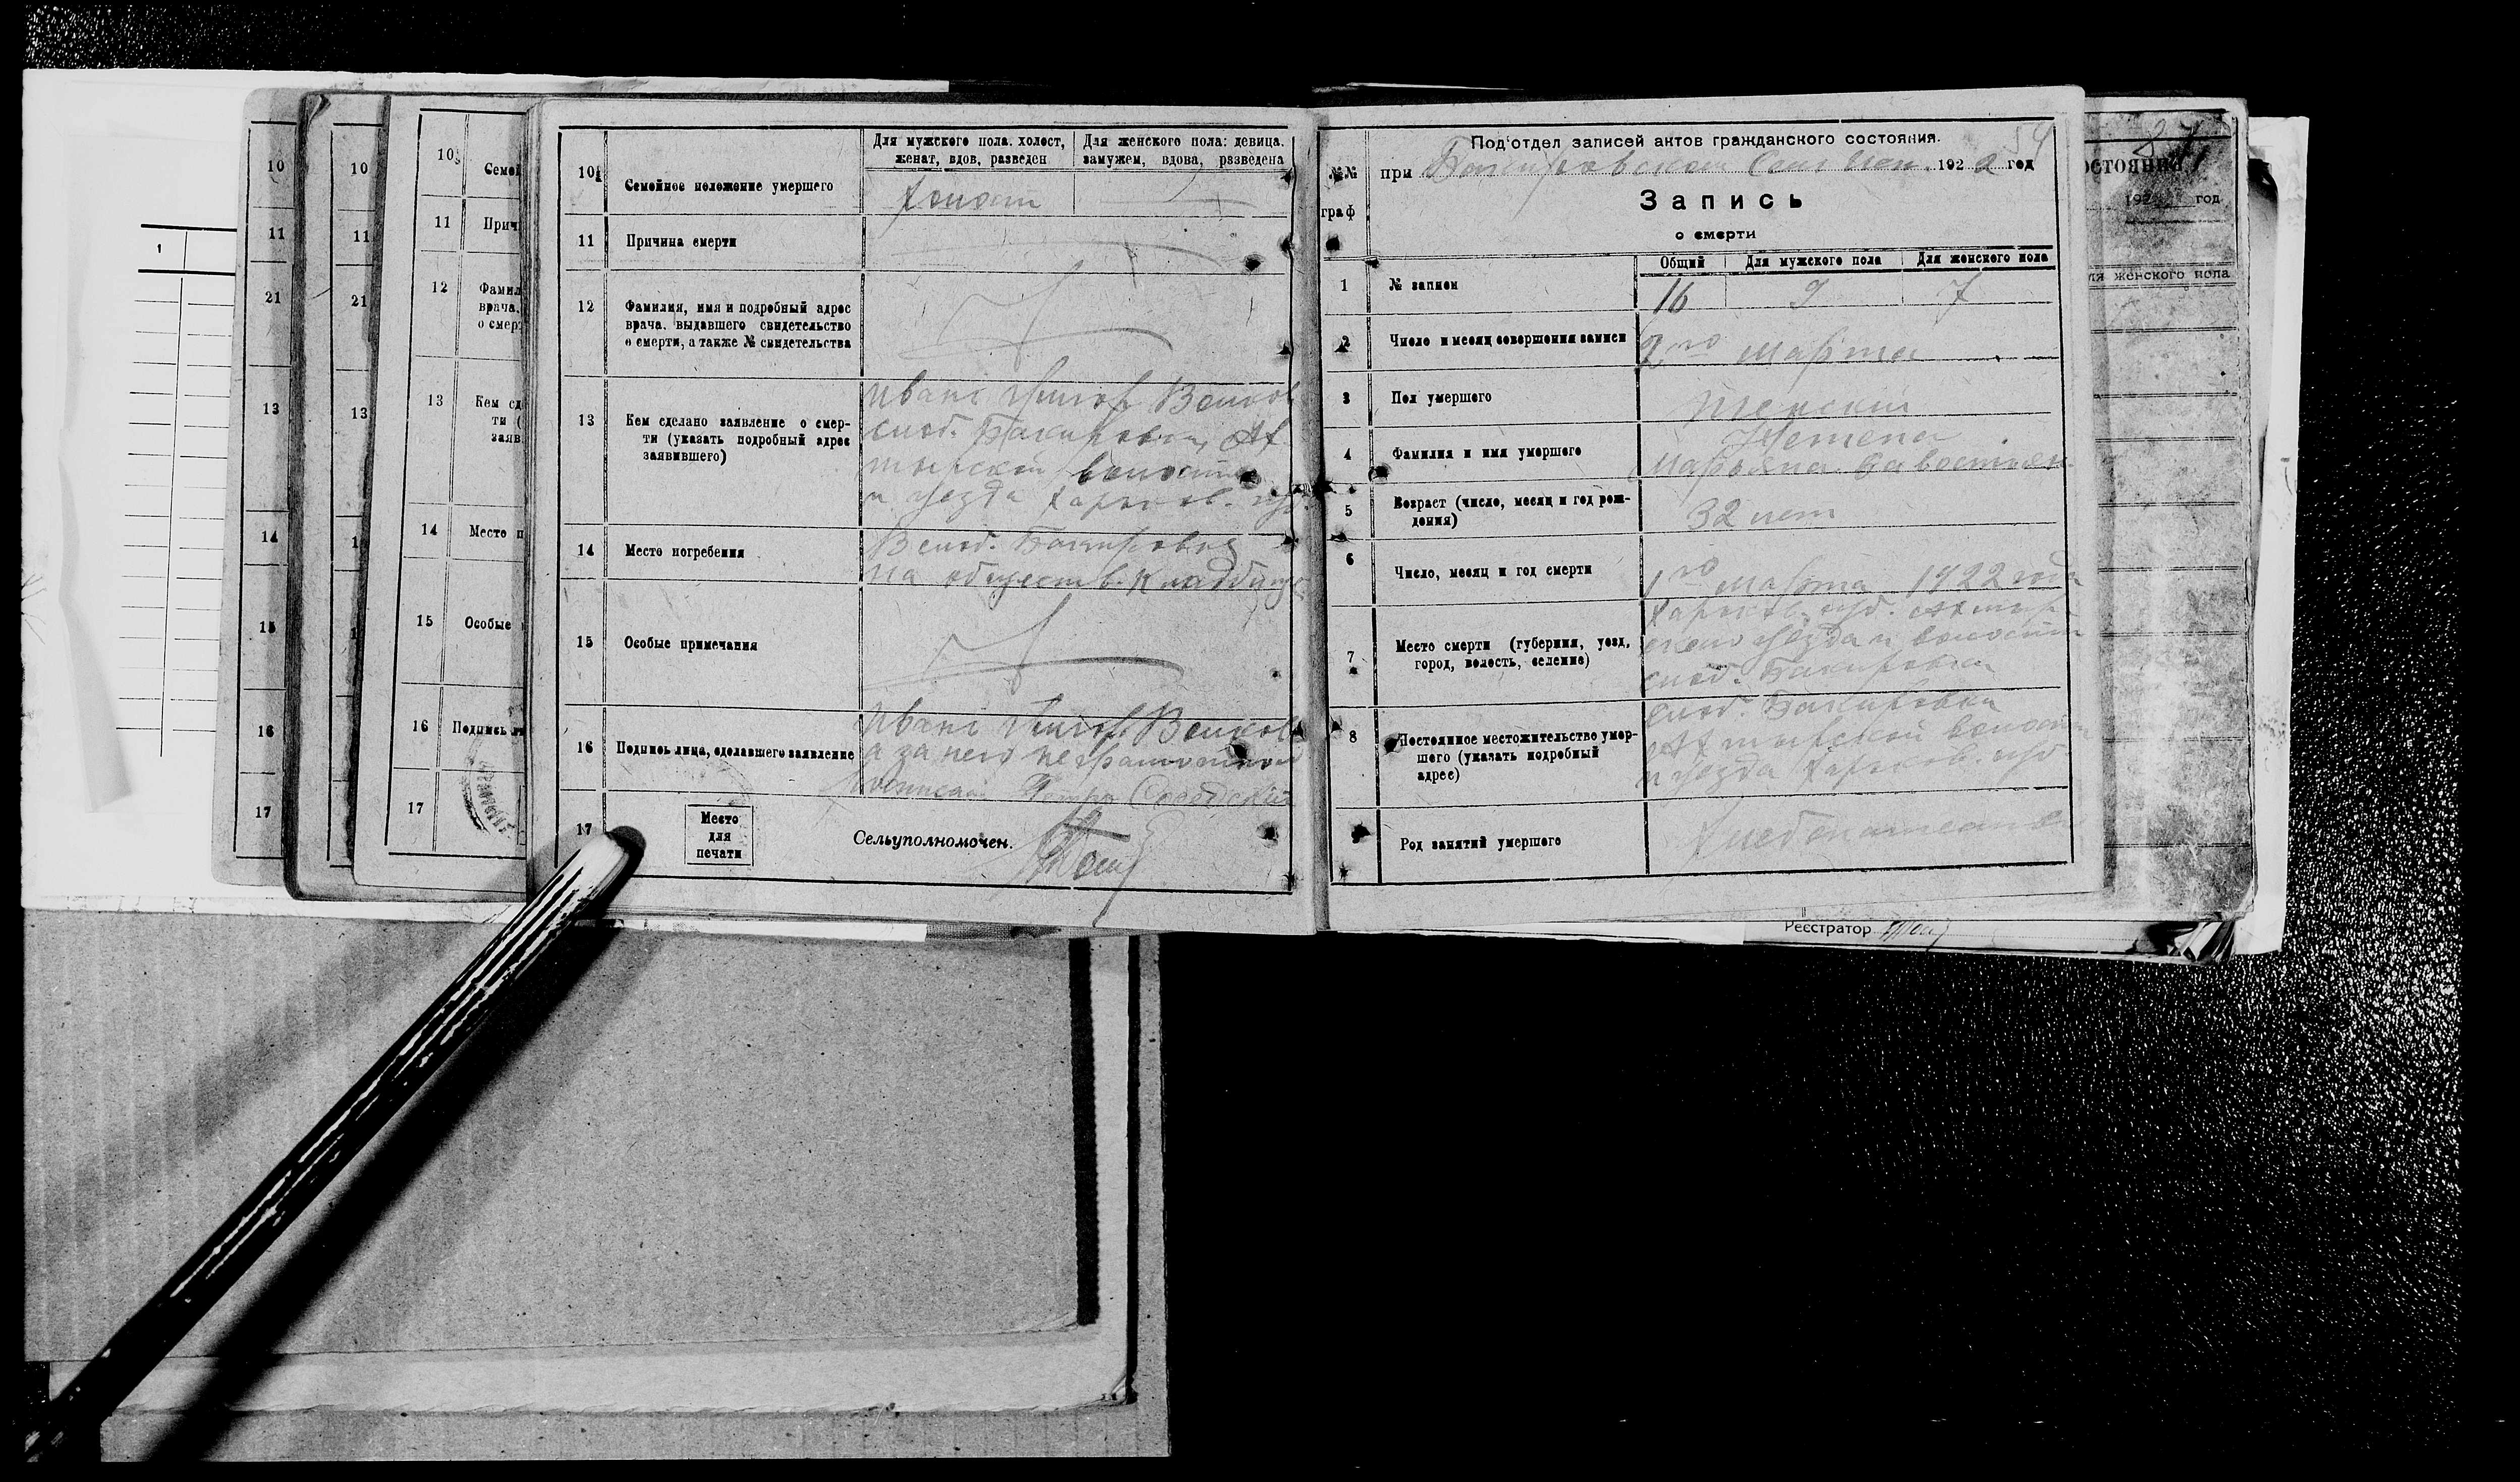 10
11
21
13
14
15
16
17
10
11
21
13
10
11
12
13
14
15
16
17
Семей
Прич
Фамил
врача.
о смер
Кем сд
ти (
заяв.
Место п
Особые
Подпись
1
10
Семейное положение умершего
Для мужского пола: холост,
женат, вдов, разведен
Для женского пола: девица.
замужем, вдова, разведена
Холост
11
Причина смерти
12
Фамилия, имя и подробный адрес
врача, выдавшего свидетельство
о смерти, а также № свидетельства
13
Кем сделано заявление о смер-
ти (указать подробный адрес
заявившего)
Иванъ Григор. Волков
слоб. Бакировки, Ах
тырской волости
и уезда Харьков. губ.
14
Место погребения
В слоб. Бакировке
на обществ. кладбище
15
Особые примечания
16
Подпись лица, сделавшего заявление
Иванъ Григор. Волков
а за него неграмотного
росписал Петр
17
Место
для
печати
Сельуполномочен.
№№
граф
Под'отдел записей актов гражданского состояния.
54
при Бакировском 192 2 год
Запись
о смерти
Общий
Для мужского пола
Для женского пола
1
№ записи
16
9
7
2
Число и месяц совершения записи
2го марта
3
Пол умершего
Женский
4
Фамилия и имя умершего
Марьяна
5
Возраст (число, месяц и год рож-
дения)
32 лет
6
Число, месяц и год смерти
1го марта 1922 года
7
Место смерти (губерния, уезд,
город, волость, селение)
Харьков. губ. Ахтыр-
ского уезда и волости
слоб. Бакировка
8
Постоянное местожительство умер-
шего (указать подробный
адрес)
слоб. Бакировки
Ахтырской волости
и уезда Харьков. губ
9
Род занятий умершего
Хлебопашество
87
остояния
192 год
ля женского пола
Реєстратор